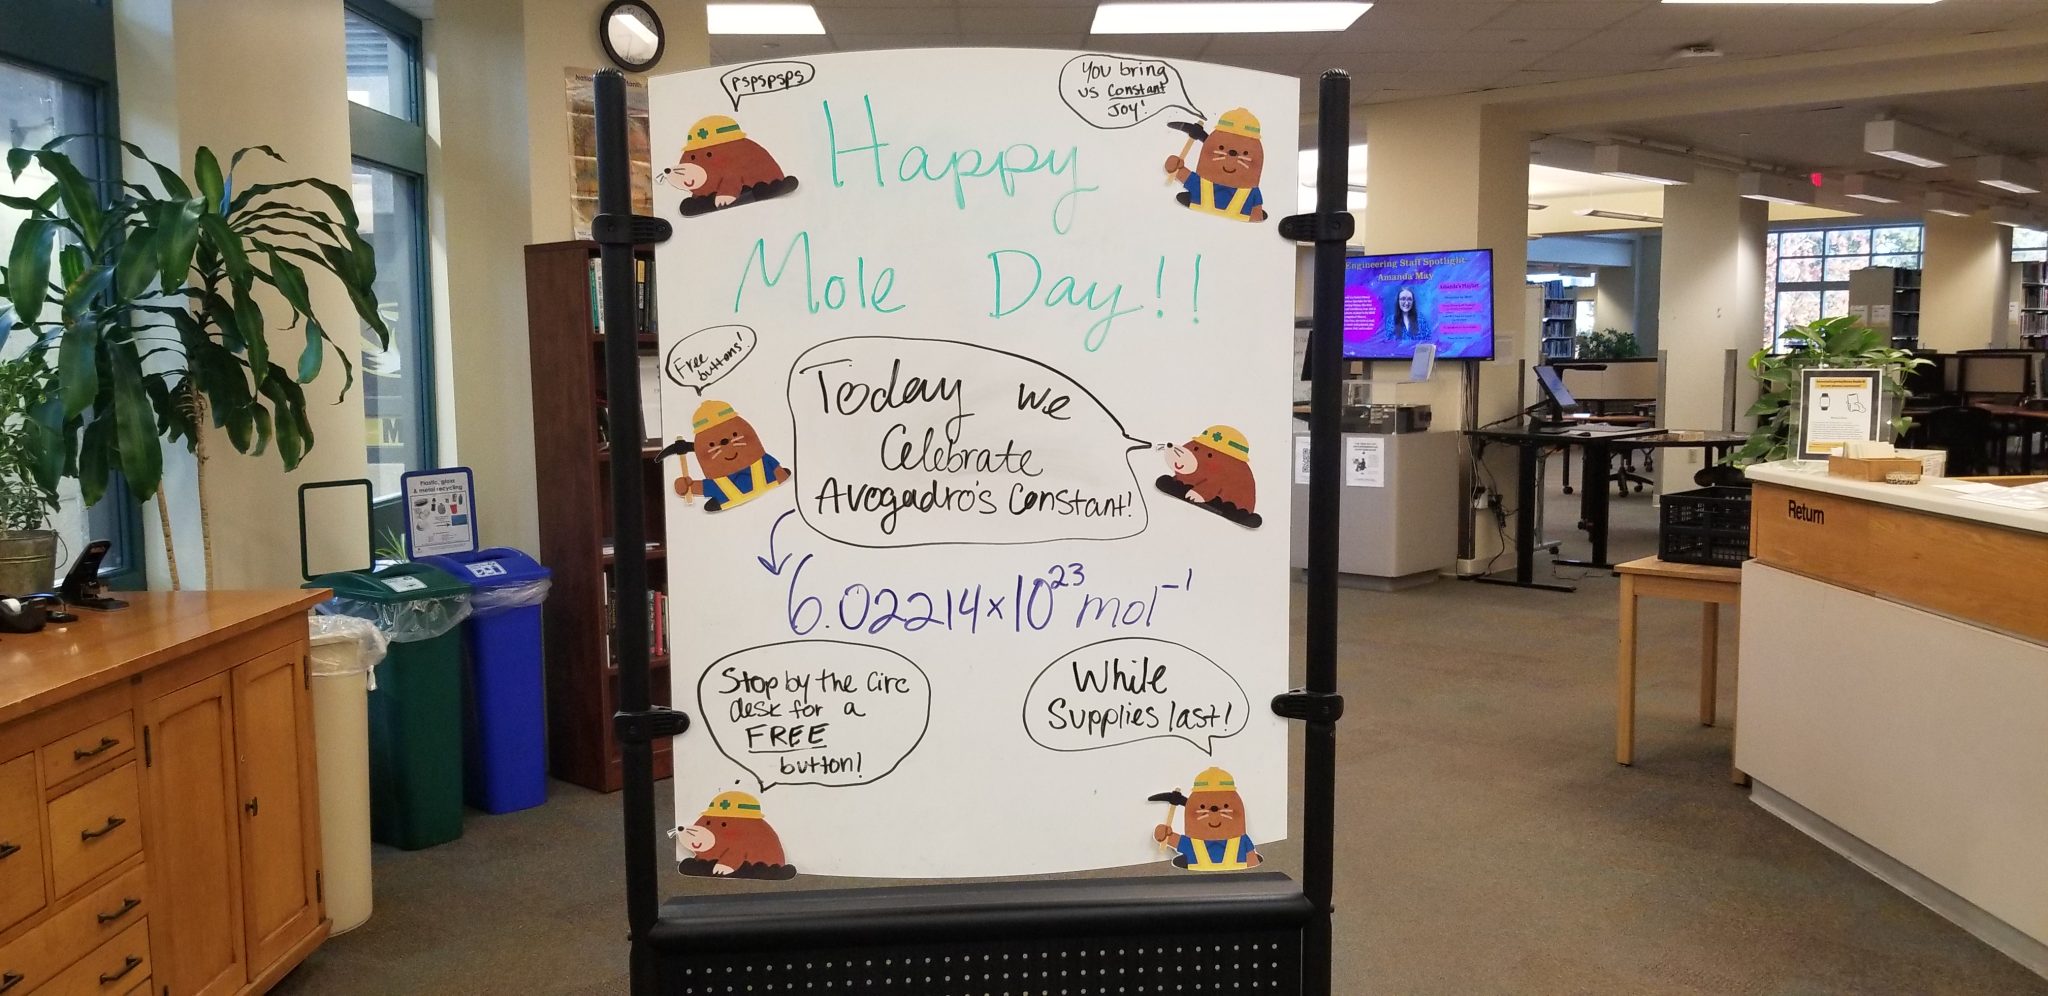 pspspsps
You bring
us constant
Joy!
Happy
Mole Day!!
Free
buttons!
Today we
Celebrate
Avogadro's Constant!
6.02214×10²³ mol⁻¹
Stop by the circ
desk for a
FREE
button!
While
Supplies last!
Engineering Staff Spotlight:
Amanda May
Amanda's Playlist
Plastic, glass
& metal recycling
Return